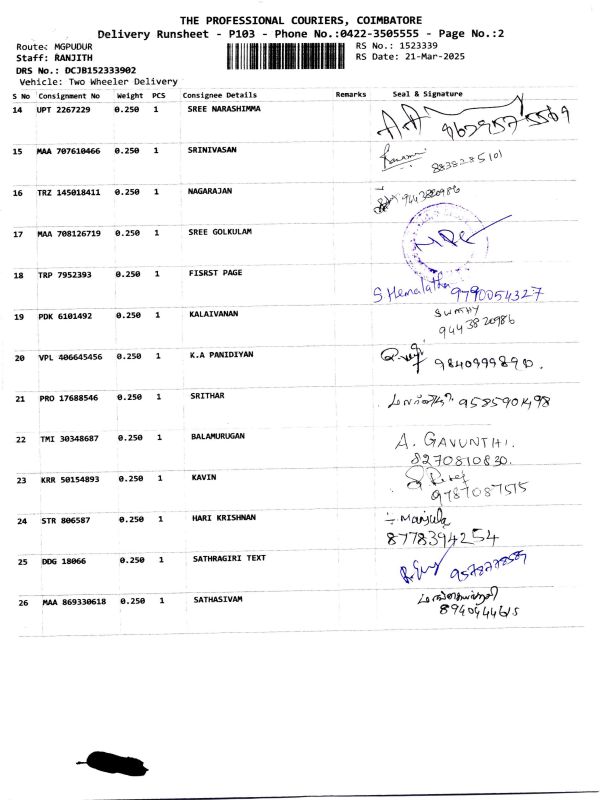 THE PROFESSIONAL COURIERS, COIMBATORE
Delivery Runsheet - P103 - Phone No.:0422-3505555 - Page No.:2
Route: MGPUDUR RS No.: 1523339
Staff: RANJITH RS Date: 21-Mar-2025
DRS No.: DCJB152333902
Vehicle: Two Wheeler Delivery
S No Consignment No Weight PCS Consignee Details Remarks Seal & Signature
14 UPT 2267229 0.250 1 SREE NARASHIMMA
15 MAA 707610466 0.250 1 SRINIVASAN 8838285101
16 TRZ 145018411 0.250 1 NAGARAJAN
17 MAA 708126719 0.250 1 SREE GOLKULAM
18 TRP 7952393 0.250 1 FISRST PAGE
S Hemalatha 9790054327
19 PDK 6101492 0.250 1 KALAIVANAN
9443820986
20 VPL 406645456 0.250 1 K.A PANIDIYAN
21 PRO 17688546 0.250 1 SRITHAR 9585901498
22 TMI 30348687 0.250 1 BALAMURUGAN
8270810830.
23 KRR 50154893 0.250 1 KAVIN
9787087515
24 STR 806587 0.250 1 HARI KRISHNAN
8778394254
25 DDG 18066 0.250 1 SATHRAGIRI TEXT
26 MAA 869330618 0.250 1 SATHASIVAM